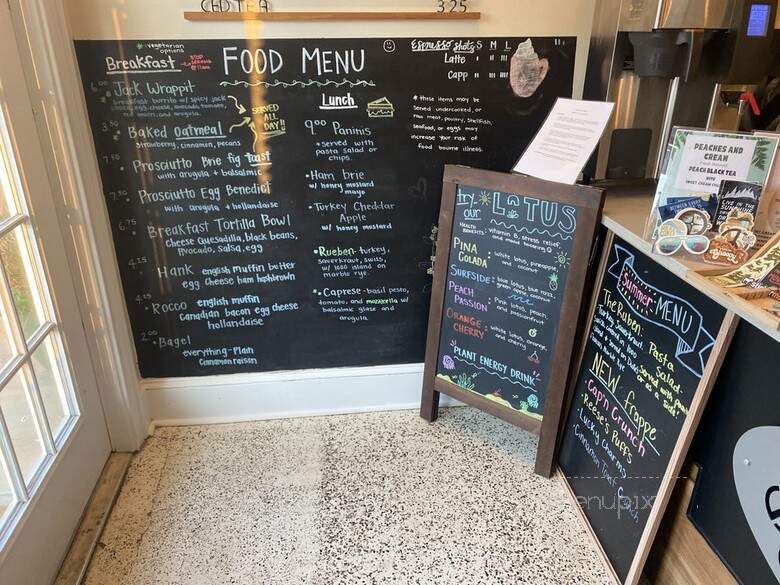 CBD TEA 3.25
FOOD MENU
*vegetarian options
Breakfast
6.00 Jack Wrappit
breakfast burrito w/ spicy jack
egg, cheese, avocado, tomato,
red onion, and arugula
SERVED ALL DAY!!
3.50 Baked oatmeal
strawberry, cinnamon, pecans
7.50 Prosciutto Brie fig toast
with arugula + balsalmic
7.50 Prosciutto Egg Benedict
with arugula + hollandaise
6.75 Breakfast Tortilla Bowl
Cheese Quesadilla, black beans,
avocado, salsa, egg
Hank english muffin butter
egg cheese ham hashbrown
4.25 Rocco english muffin
Canadian bacon egg cheese
hollandaise
2.00 •Bagel
everything-Plain
Cinnamon raisin
Lunch
9.00 Paninis
*served with
pasta salad or
chips.
•Ham brie
w/ honey mustard
mayo
•Turkey Cheddar
Apple
w/ honey mustard
•Rueben-turkey,
sauerkraut, swiss,
w/ 1000 island on
marble rye.
•Caprese-basil pesto,
tomato, and mozzarella w/
balsalmic glaze and
arugula
Espresso shots S M L
Latte
Capp
* these items may be
served undercooked, or
raw meat, poultry, shellfish,
seafood, or eggs may
increase your risk of
food bourne illness.
try our LOTUS
HEALTH BENEFITS:
vitamin B, stress relief,
and mood boosting
PINA COLADA: white lotus, pineapple,
and coconut
SURFSIDE: blue lotus, blue razz,
green apple, coconut
PEACH PASSION: Pink lotus, peach,
and passionfruit
ORANGE CHERRY: white lotus, orange,
and cherry
PLANT ENERGY DRINK
PEACHES AND CREAM
PEACH BLACK TEA
WITH
SWEET CREAM
LIVE IN THE SUNSHINE
Summer MENU
The Ruben:
Turkey, Sauerkraut,
Pasta Salad
Served with
or as a side!
NEW frappe
Cap'n Crunch
Reese's Puffs
Lucky Charms
Cinnamon Toast Crunch
menupix